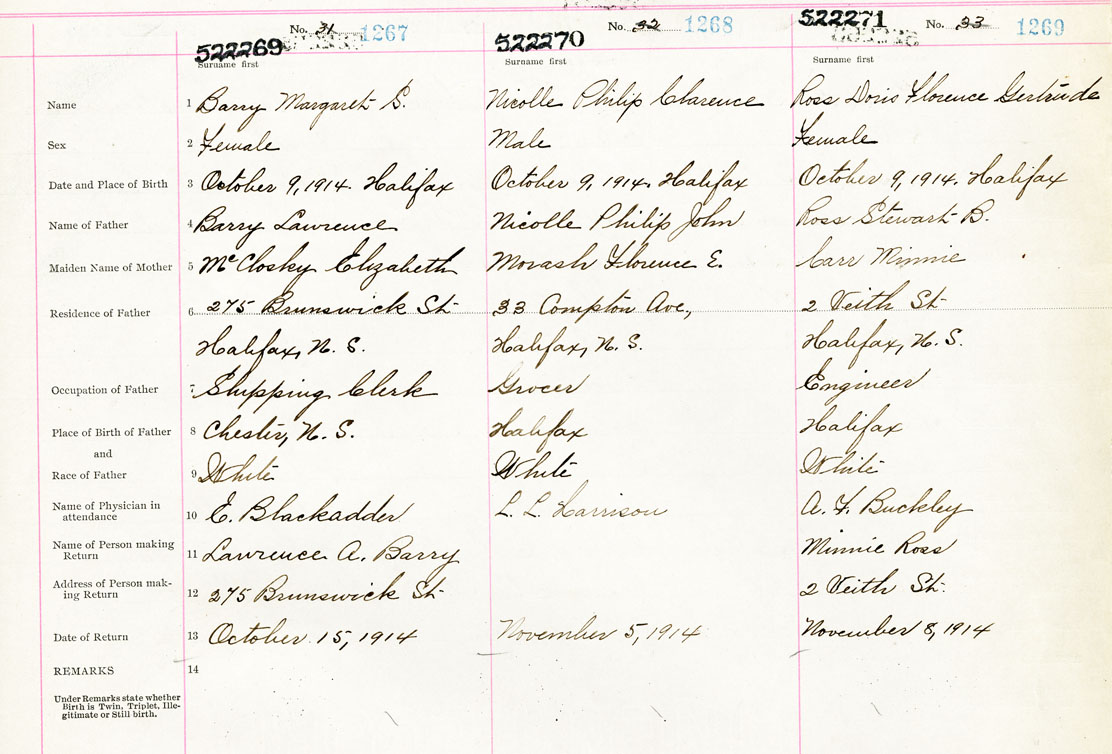 No. 31 1267 No. 32 1268 522271 No. 33 1269
522269 522270
Surname first Surname first Surname first
Name 1 Barry Margaret S. Nicolle Philip Clarence Ross Doris Florence Gertrude
Sex 2 Female Male Female
Date and Place of Birth 3 October 9, 1914. Halifax October 9, 1914. Halifax October 9, 1914. Halifax
Name of Father 4 Barry Lawrence Nicolle Philip John Ross Stewart B.
Maiden Name of Mother 5 McClosky Elizabeth Morash Florence E. Carr Minnie
Residence of Father 6 275 Brunswick St 33 Compton Ave., 2 Veith St
Halifax, N. S. Halifax, N. S. Halifax, N. S.
Occupation of Father 7 Shipping Clerk Grocer Engineer
Place of Birth of Father 8 Chester, N. S. Halifax Halifax
and
Race of Father 9 White White White
Name of Physician in
attendance 10 E. Blackadder L. L. Harrison A. F. Buckley
Name of Person making
Return 11 Lawrence A. Barry Minnie Ross
Address of Person mak-
ing Return 12 275 Brunswick St. 2 Veith St.
Date of Return 13 October 15, 1914 November 5, 1914 November 8, 1914
REMARKS 14
Under Remarks state whether
Birth is Twin, Triplet, Ille-
gitimate or Still birth.